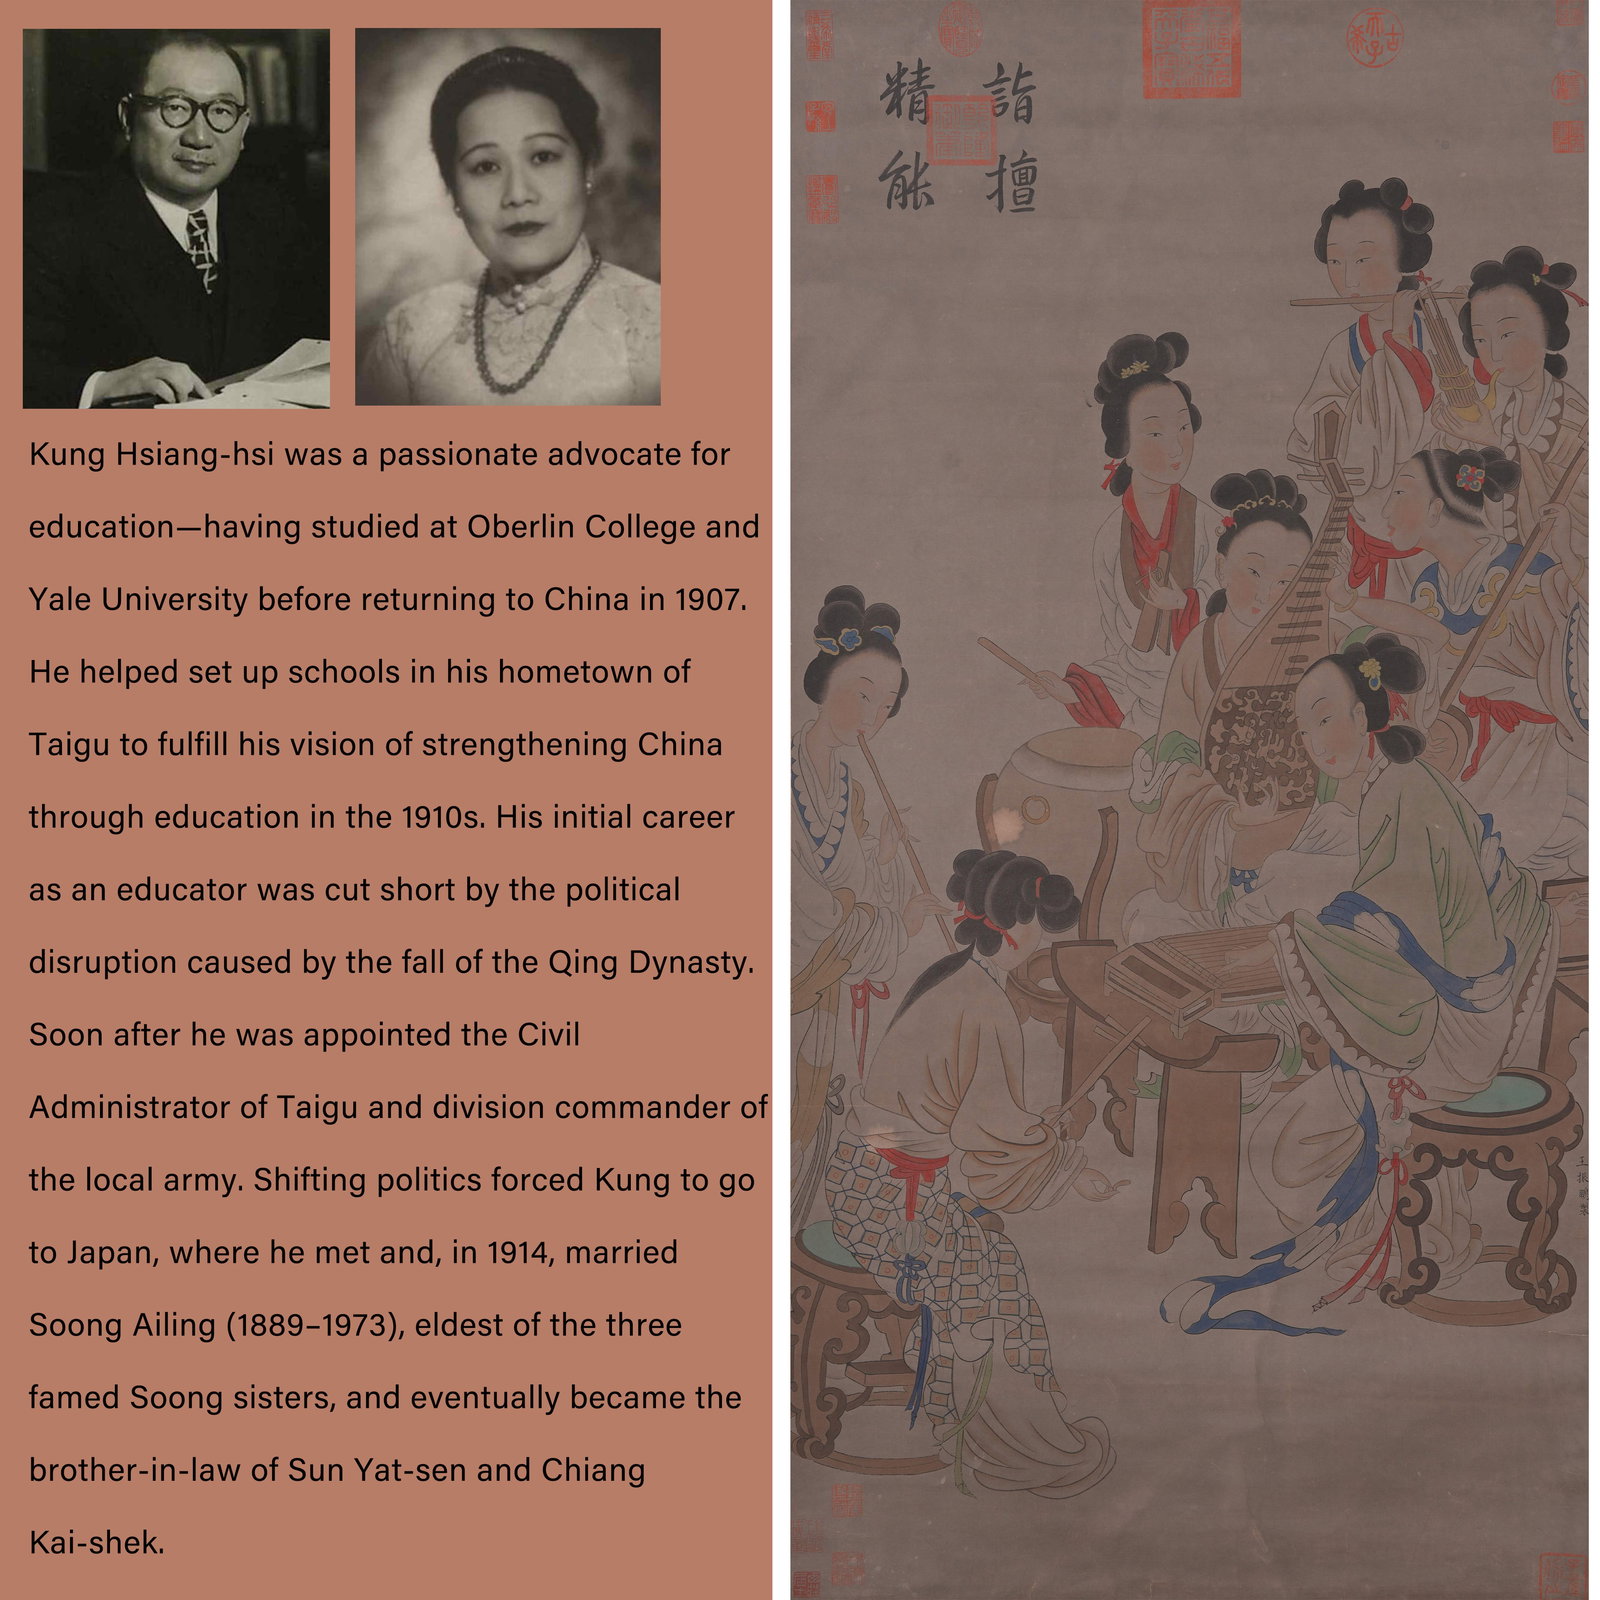 Kung Hsiang-hsi was a passionate advocate for
education—having studied at Oberlin College and
Yale University before returning to China in 1907.
He helped set up schools in his hometown of
Taigu to fulfill his vision of strengthening China
through education in the 1910s. His initial career
as an educator was cut short by the political
disruption caused by the fall of the Qing Dynasty.
Soon after he was appointed the Civil
Administrator of Taigu and division commander of
the local army. Shifting politics forced Kung to go
to Japan, where he met and, in 1914, married
Soong Ailing (1889–1973), eldest of the three
famed Soong sisters, and eventually became the
brother-in-law of Sun Yat-sen and Chiang
Kai-shek.
詣擅
精能
王振鵬製